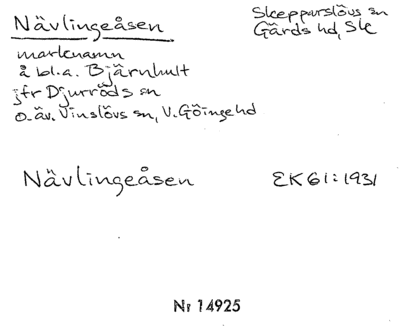 Nävlingeåsen
Skepparslövs sn
Gärds hd, Sk
marknamn
å bl.a. Bjärnhult
jfr Djurröds sn
o. äv. Vinslövs sn, V. Göinge hd
Nävlingeåsen
EK 61:1931
Nr 14925